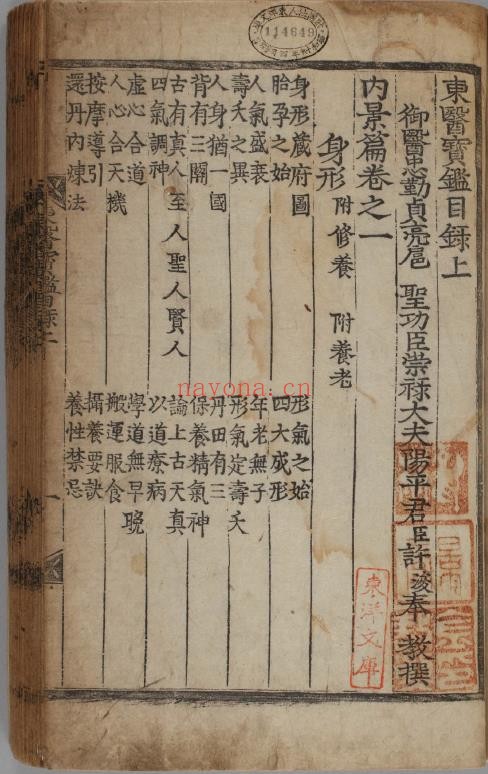 東醫寶鑑目錄上
御醫忠勤貞亮扈聖功臣崇祿大夫陽平君臣許浚奉教撰
内景篇卷之一
身形 附修養 附養老
身形藏府圖 形氣之始
胎孕之始 四大成形
人氣盛衰 年老無子
壽夭之異 形氣定壽夭
人身猶一國 丹田有三
背有三關 保養精氣神
古有真人至人聖人賢人 論上古天真
四氣調神 以道療病
虛心合道 學道無早晩
人心合天機 搬運服食
按摩導引 攝養要訣
還丹內煉法 養性禁忌
一
東洋文庫
114649
nayona.cn